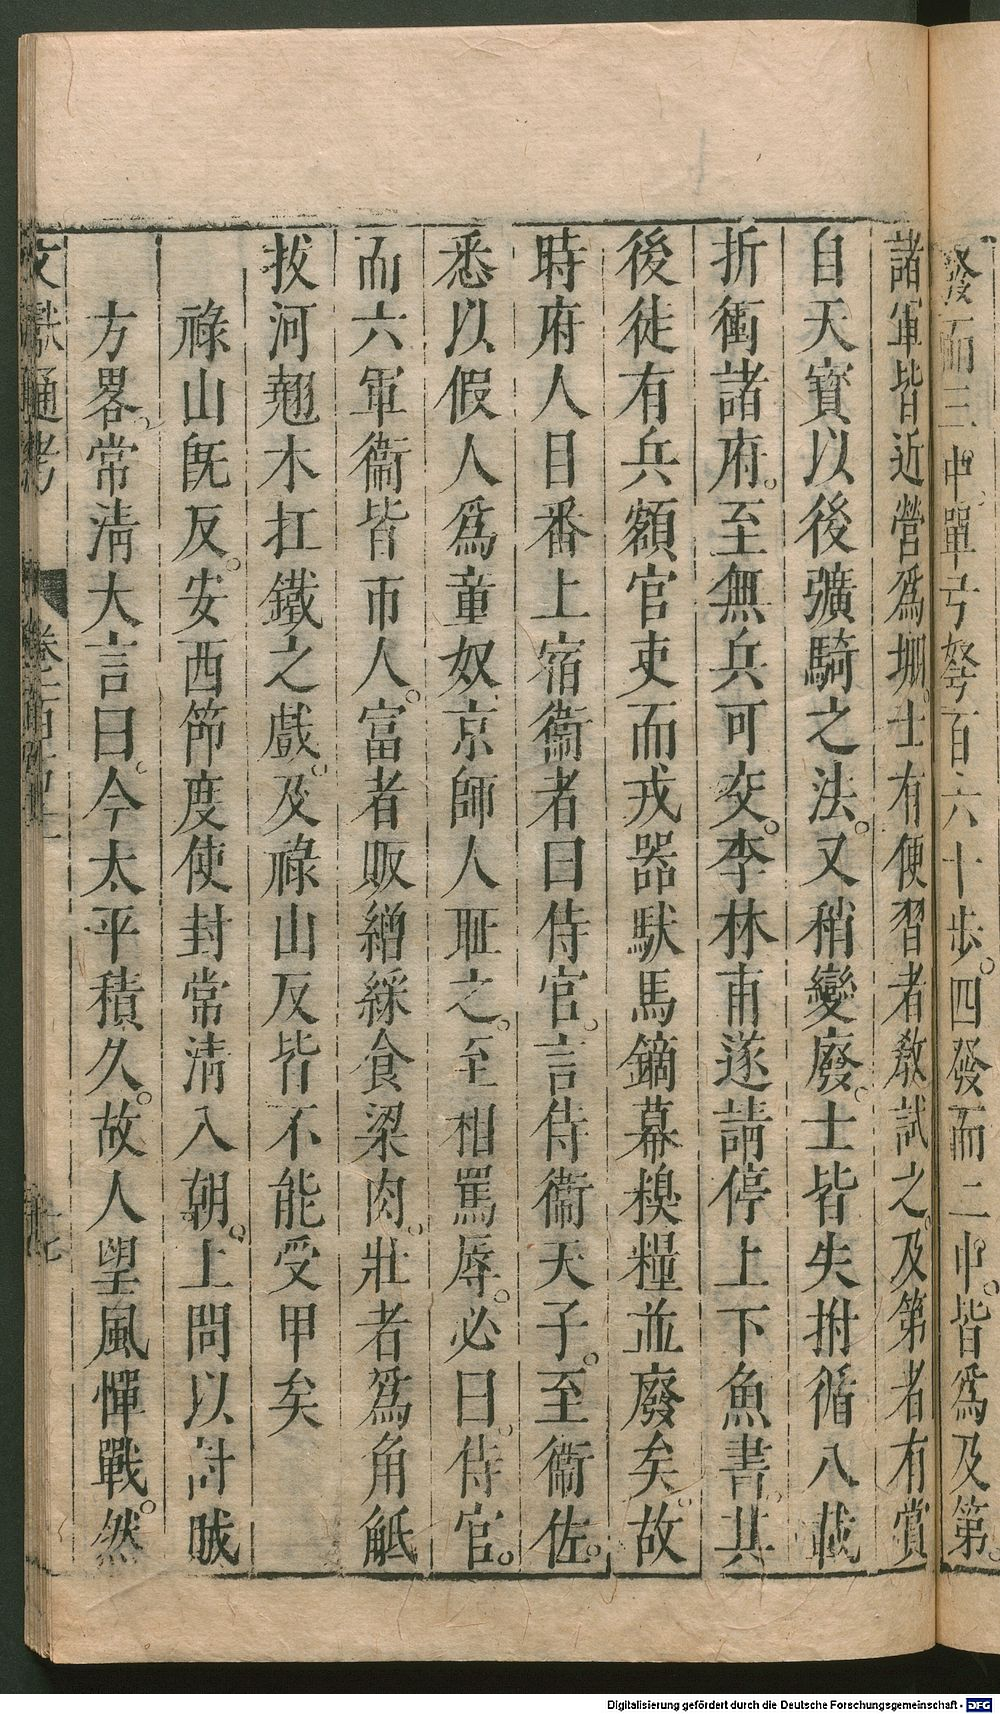 發而三中單弓弩百六十步四發而二中皆爲及第
諸軍皆近營爲堋士有便習者敎試之及第者有賞
自天寶以後彍騎之法又稍變廢士皆失拊循八載
折衝諸府至無兵可交李林甫遂請停上下魚書其
後徒有兵額官吏而戎器馱馬鍋幕糗糧並廢矣故
時府人目番上宿衞者曰侍官言侍衞天子至衞佐
悉以假人爲童奴京師人耻之至相罵辱必曰侍官
而六軍衞皆市人富者販繒綵食粱肉壯者爲角觝
拔河翹木扛鐵之戲及祿山反皆不能受甲矣
祿山旣反安西節度使封常淸入朝上問以討賊
方畧常淸大言曰今太平積久故人望風憚戰然
文獻通考 卷一百五十一
Digitalisierung gefördert durch die Deutsche Forschungsgemeinschaft - DFG